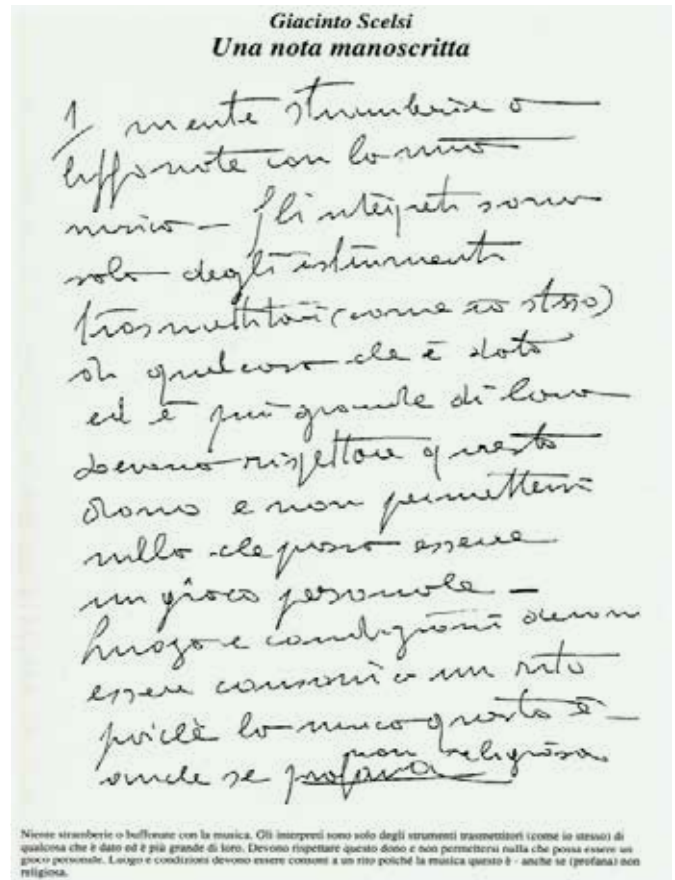 Giacinto Scelsi
Una nota manoscritta
1 niente stramberie o
buffonate con la mia
musica – gli interpreti sono
solo degli istrumenti
trasmettitori (come io stesso)
di qualcosa che è dato
ed è più grande di loro
devono rispettare questo
dono e non permettersi
nulla che possa essere
un gioco personale –
Luogo e condizioni devono
essere consoni a un rito
poichè la musica questo è –
non religiosa
anche se profana
Niente stramberie o buffonate con la musica. Gli interpreti sono solo degli strumenti trasmettitori (come io stesso) di
qualcosa che è dato ed è più grande di loro. Devono rispettare questo dono e non permettersi nulla che possa essere un
gioco personale. Luogo e condizioni devono essere consoni a un rito poiché la musica questo è - anche se (profana) non
religiosa.